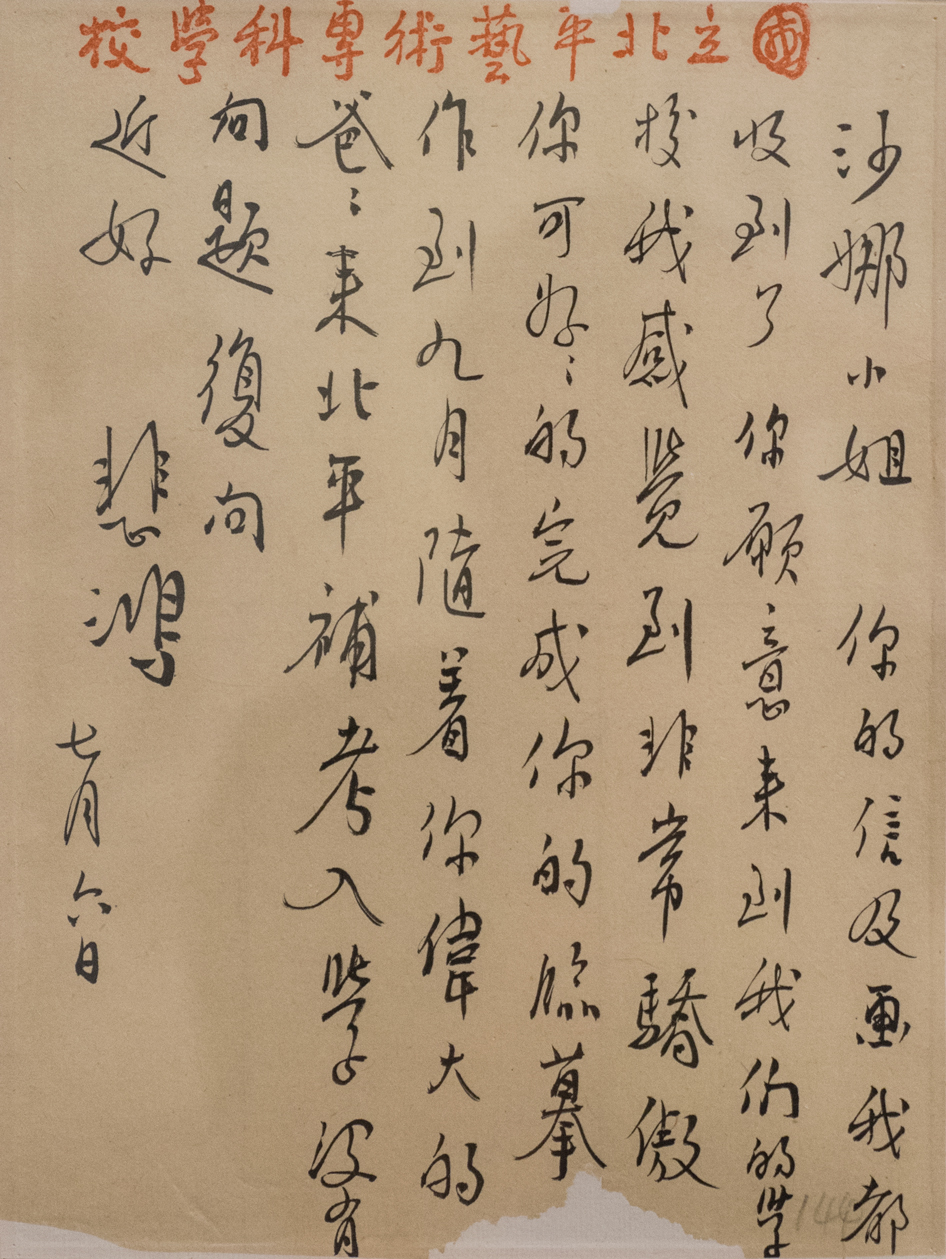 國立北平藝術專科學校
沙娜小姐 你的信及画我都
收到了你願意来到我们的學
校我感覺到非常驕傲
你可好〻的完成你的臨摹
作到九月隨着你偉大的
爸〻来北平補考入學没有
问題復问
近好 悲鴻
七月六日
144